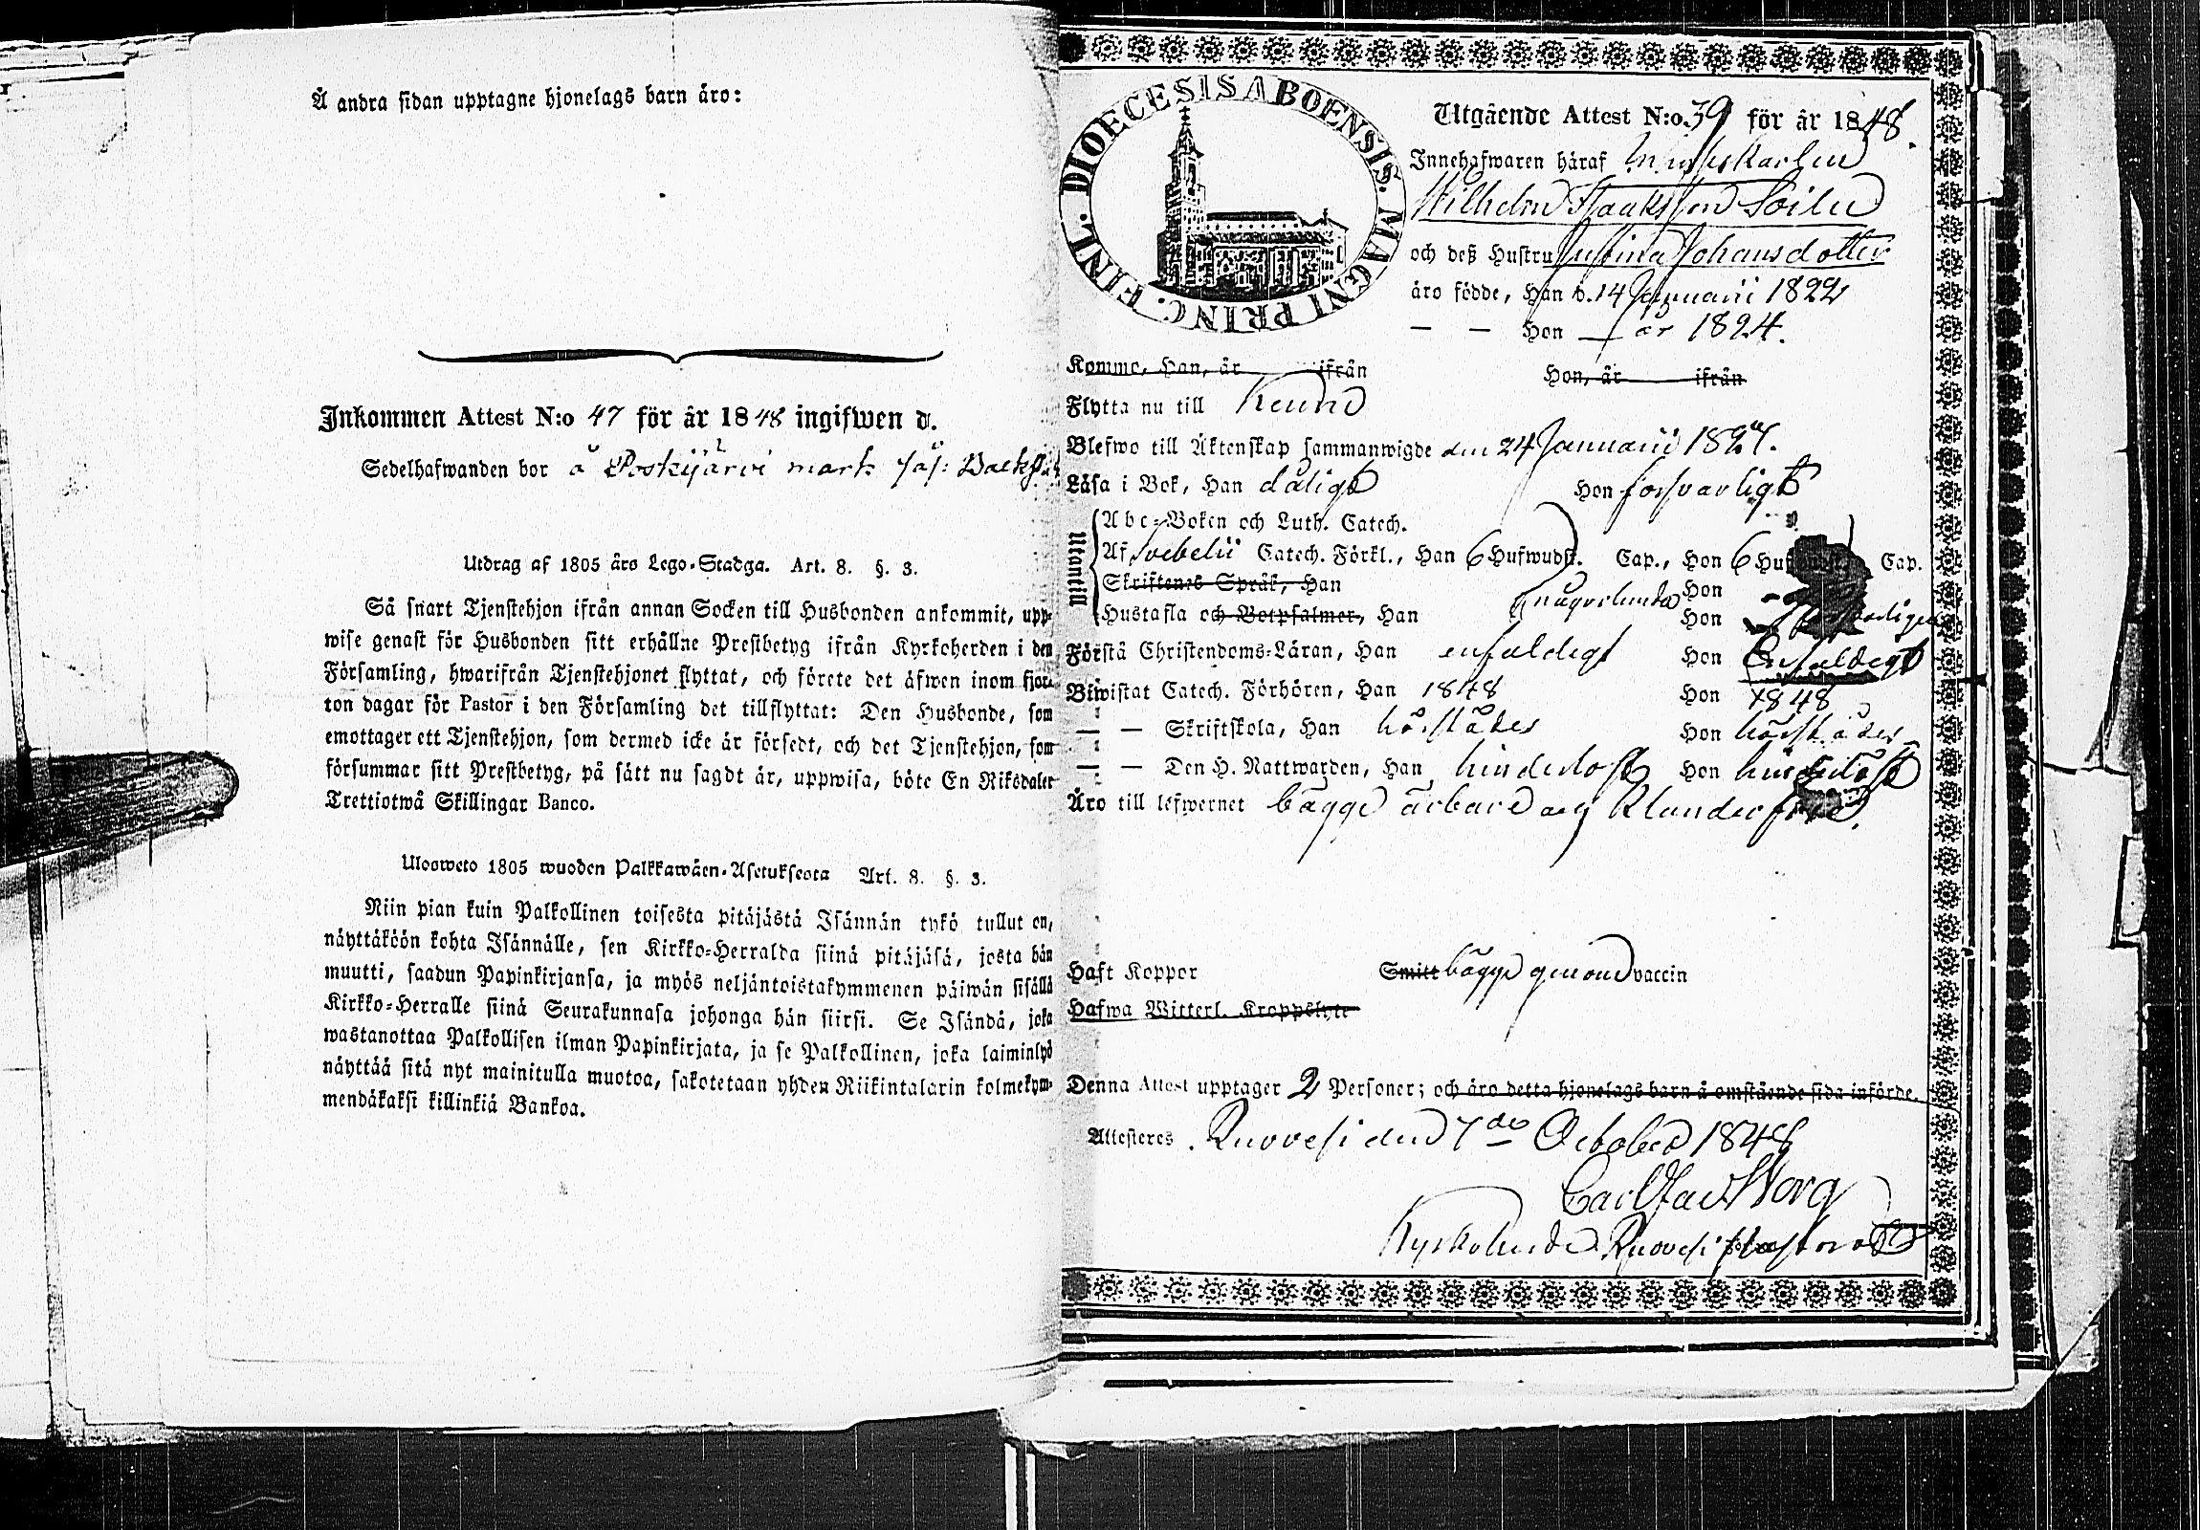 Å andra sidan upptagne hjonelags barn äro:
Inkommen Attest N:o 47 för år 1848 ingifwen d.
Sedelhafwanden bor å Poskijärvi mark
Utdrag af 1805 års Lego-Stadga. Art. 8. §. 3.
Så snart Tjenstehjon ifrån annan Socken till Husbonden ankommit, upp-
wise genast för Husbonden sitt erhållne Prestbetyg ifrån Kyrkoherden i den
Församling, hwarifrån Tjenstehjonet flyttat, och förete det äfwen inom fjor-
ton dagar för Pastor i den Församling det tillflyttat: Den Husbonde, som
emottager ett Tjenstehjon, som dermed icke är försedt, och det Tjenstehjon, som
försummar sitt Prestbetyg, på sätt nu sagdt är, uppwisa, böte En Riksdaler
Trettiotwå Skillingar Banco.
Ulosweto 1805 wuoden Palkkawäen-Asetuksesta Art. 8. §. 3.
Niin pian kuin Palkollinen toisesta pitäjästä Isännän tykö tullut on,
näyttäköön kohta Isännälle, sen Kirkko-Herralda siinä pitäjäsä, josta hän
muutti, saadun Papinkirjansa, ja myös neljäntoistakymmenen päiwän sisällä
Kirkko-Herralle siinä Seurakunnasa johonga hän siirsi. Se Isändä, joka
wastanottaa Palkollisen ilman Papinkirjata, ja se Palkollinen, joka laiminlyö
näyttää sitä nyt mainitulla muotoa, sakotetaan yhden Riikintalarin kolmekym-
mendäkaksi killinkiä Bankoa.
DIOECESIS ABOENSIS. MAGNI PRINC. FINL.
Utgående Attest N:o 39 för år 1848.
Innehafwaren häraf
Wilhelm Isaaksson Soilu
och deß Hustru Justina Johansdotter
äro födde, Han d. 14 Januarii 1822
— — Hon — år 1824.
Komme, Han, år ifrån Hon, år ifrån
Flytta nu till Keuru
Blefwo till Äktenskap sammanwigde den 24 Januarii 1847.
Läsa i Bok, Han dåligt Hon försvarligt
Utantill
Abc-Boken och Luth. Catech.
Af Svebelii Catech. Förkl., Han 6 Hufwudst. Cap., Hon 6 Hufwudst. Cap.
Skriftenes Språk, Han Hon
Hustafla och Botpsalmer, Han någorlunda Hon
Förstå Christendoms-Läran, Han enfaldigt Hon Enfaldigt
Biwistat Catech. Förhören, Han 1848 Hon 1848
— — Skriftskola, Han härstädes Hon härstädes
— — Den H. Nattwarden, Han hinderlöst Hon hinderlöst
Äro till lefwernet bägge ärbare och klanderfrie.
Haft Koppor Smitt bägge genom vaccin
Hafwa Witterl. Kroppslyte
Denna Attest upptager 2 Personer; och äro detta hjonelags barn å omstående sida införde.
Attesteres. Ruovesi den 7de October 1848
Carl Gust. Borg
Kyrkoherde i Ruovesi Pastorat